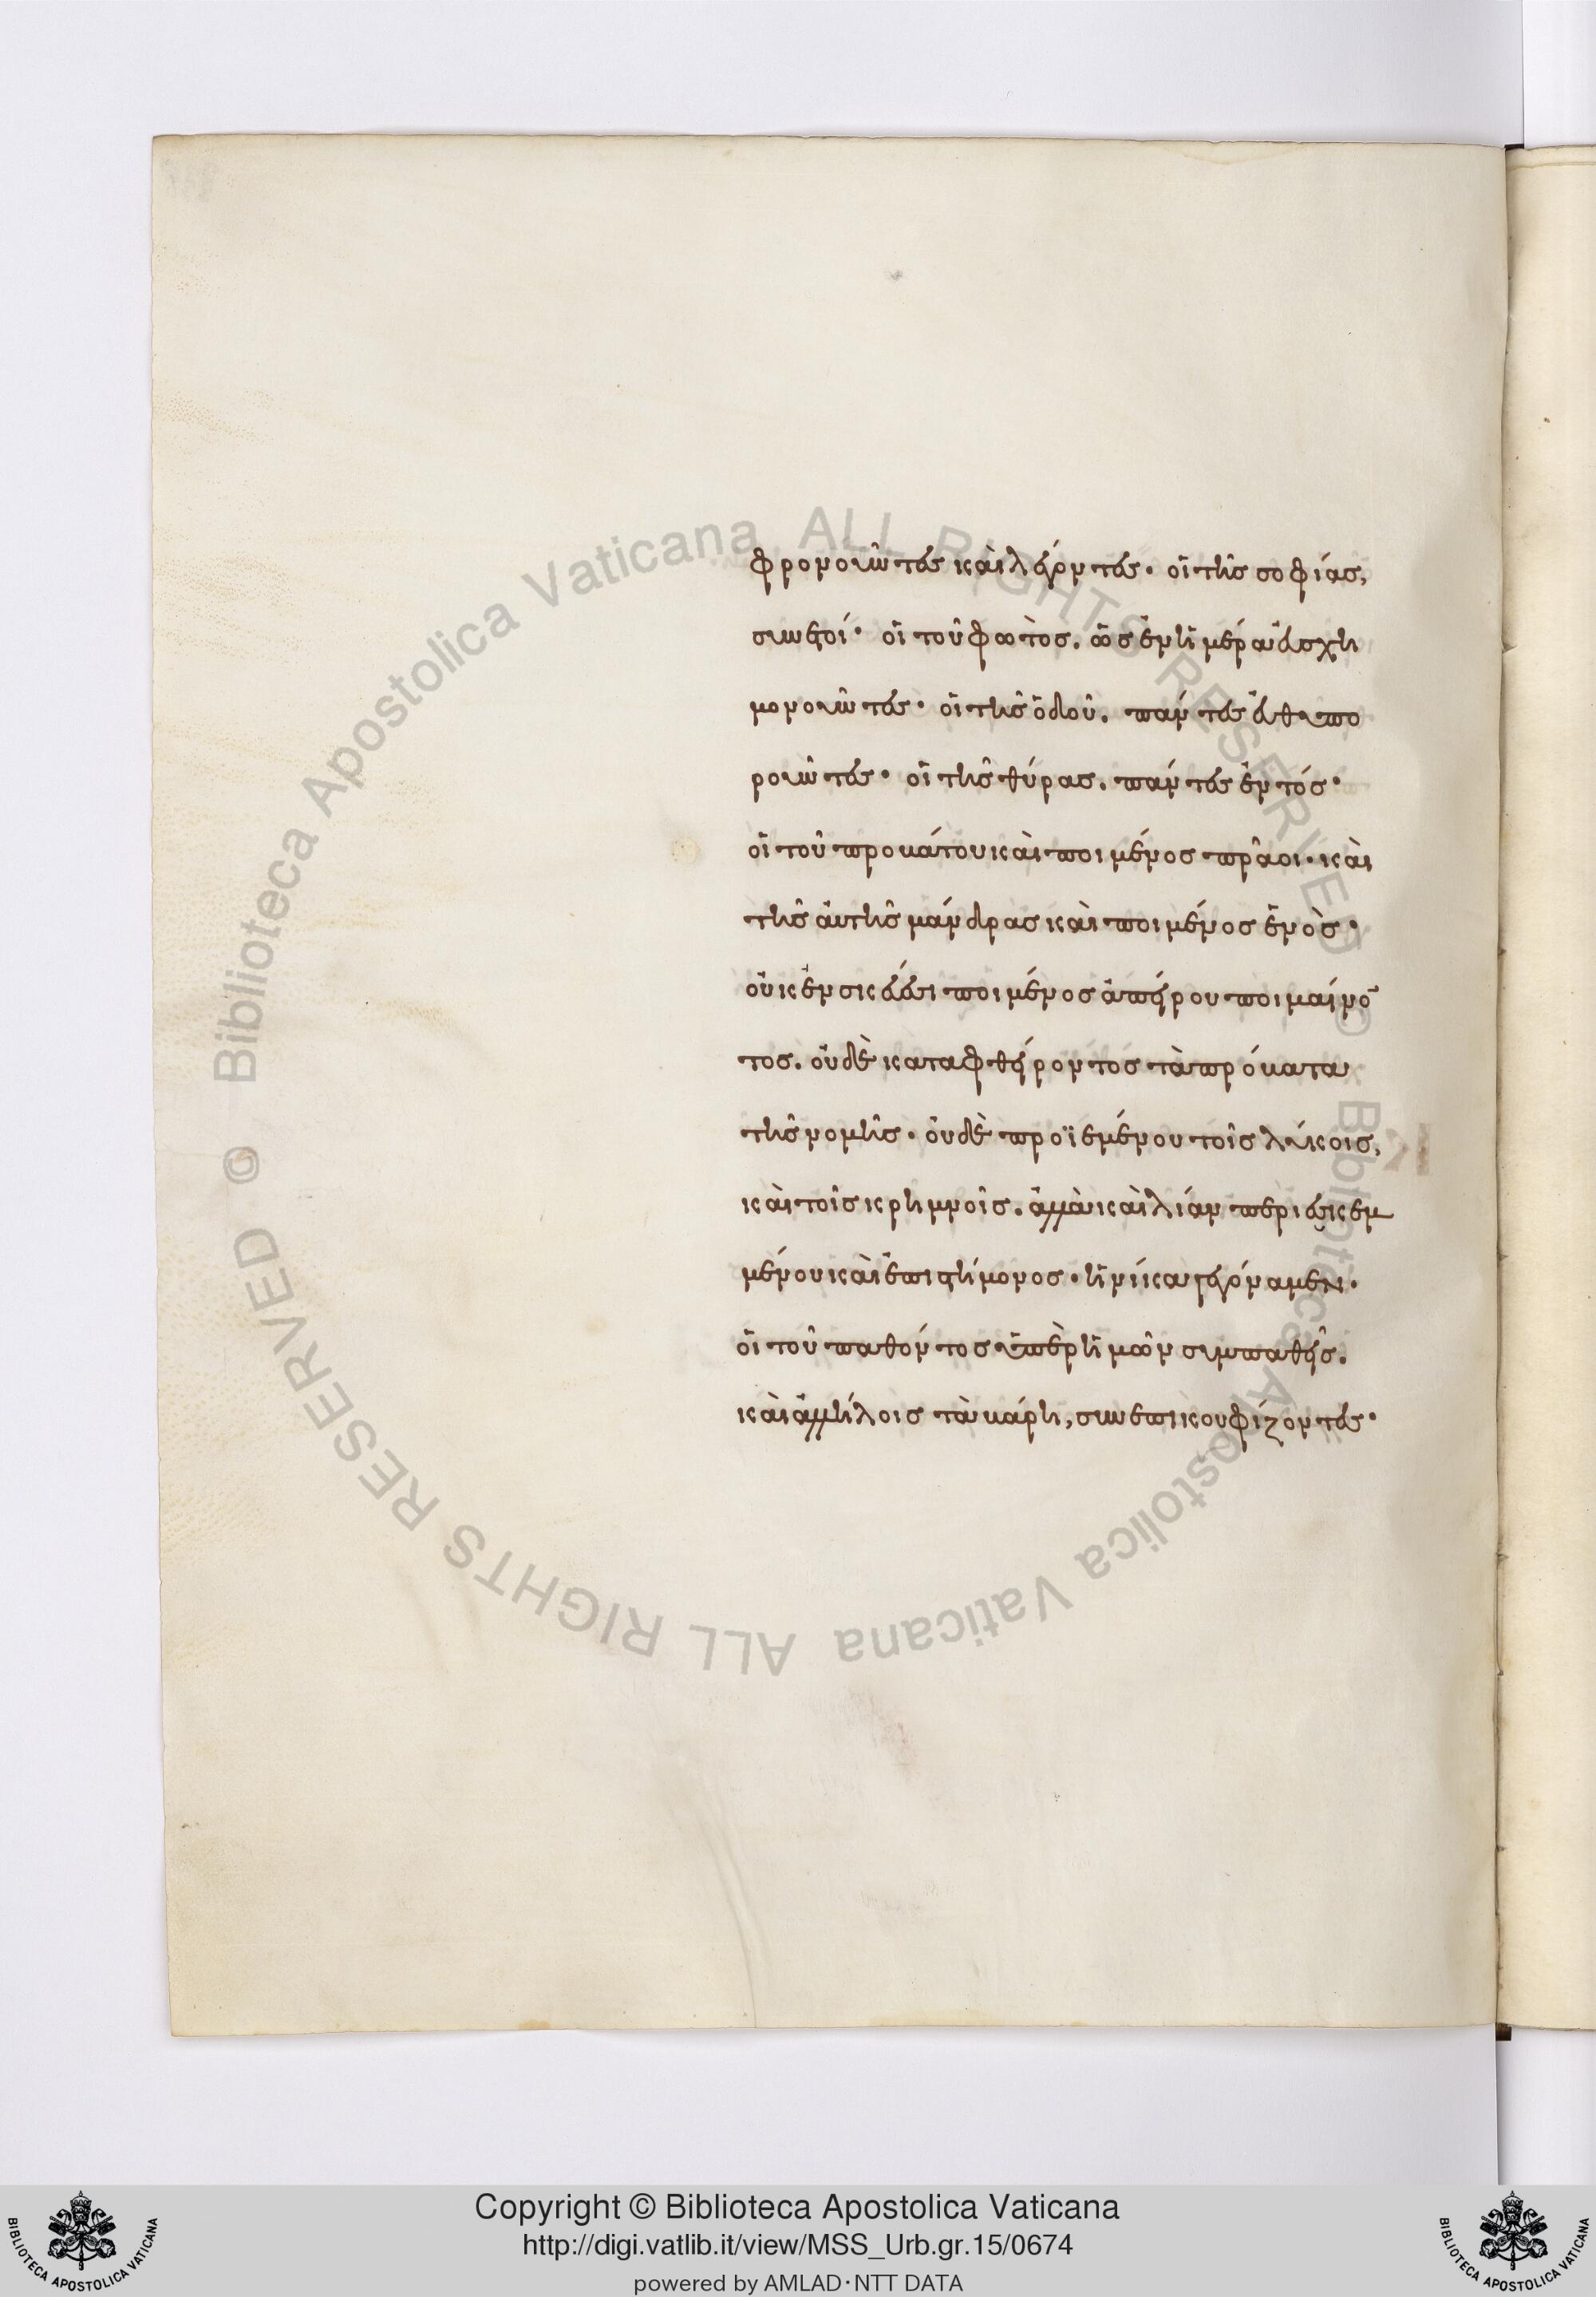 φρονοῦντες καὶ λέγοντες· οἱ τῆς σοφίας,
συνετοί· οἱ τοῦ φωτὸς, ὡς ἐν ἡμέρα εὐσχη
μονοῦντες· οἱ τῆς ὁδοῦ, πάντες εὐθυπο
ροῦντες· οἱ τῆς θύρας, πάντες ἐντός·
οἱ τοῦ προβάτου καὶ ποιμένος πρᾶοι· καὶ
τῆς αὐτῆς μάνδρας καὶ ποιμένος ἑνὸς·
οὐκ ἐν σκεύει ποιμένος ἀπείρου ποιμαίνο
τος, οὐδὲ καταφθείροντος τὰ πρόβατα
τῆς νομῆς· οὐδὲ προϊεμένου τοῖς λύκοις,
καὶ τοῖς κρημνοῖς, ἀλλὰ καὶ λίαν περιεσκεμ
μένου καὶ ἐπιστήμονος· ἡνίκα γεγόναμεν·
οἱ τοῦ παθόντος ὑπὲρ ἡμῶν συμπαθεῖς,
καὶ ἀλλήλοις τὰ βάρη, συνεπικουφίζοντες·
Copyright © Biblioteca Apostolica Vaticana
http://digi.vatlib.it/view/MSS_Urb.gr.15/0674
powered by AMLAD·NTT DATA
BIBLIOTECA APOSTOLICA VATICANA
BIBLIOTECA APOSTOLICA VATICANA
© Biblioteca Apostolica Vaticana ALL RIGHTS RESERVED
© Biblioteca Apostolica Vaticana ALL RIGHTS RESERVED